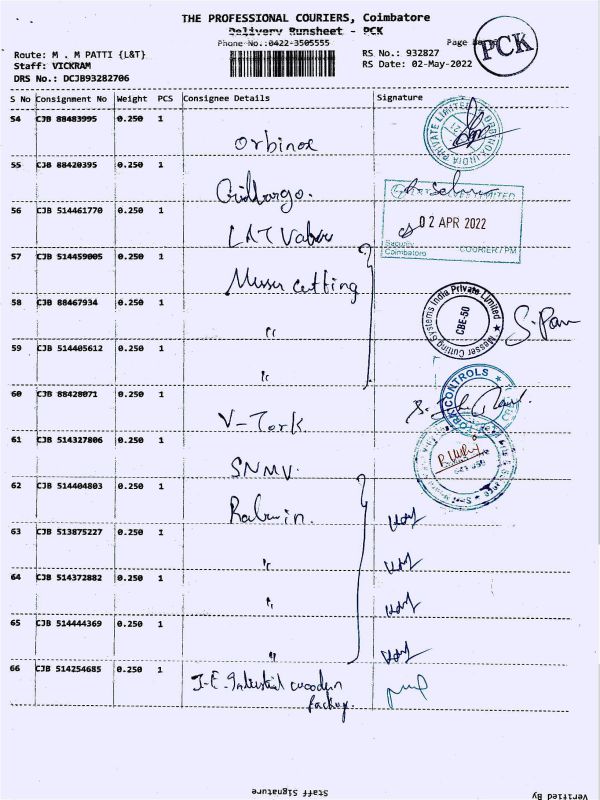 THE PROFESSIONAL COURIERS, Coimbatore
Delivery Runsheet - PCK
Phone No.:0422-3505555
Page
PCK
Route: M . M PATTI {L&T}
RS No.: 932827
Staff: VICKRAM
RS Date: 02-May-2022
DRS No.: DCJB93282706
S No Consignment No Weight PCS Consignee Details Signature
54 CJB 88483995 0.250 1 Orbinox
ORBINOX INDIA PRIVATE LIMITED
55 CJB 88420395 0.250 1
56 CJB 514461770 0.250 1 L&T Valves
02 APR 2022
Security
Coimbatore
COURIER/PM
57 CJB 514459005 0.250 1 Messer cutting
58 CJB 88467934 0.250 1 "
Messer Cutting Systems India Private Limited
CBE-50
59 CJB 514405612 0.250 1 "
60 CJB 88428071 0.250 1 V-Tork
TORK CONTROLS
61 CJB 514327806 0.250 1 SNMV.
62 CJB 514404803 0.250 1
63 CJB 513875227 0.250 1 "
64 CJB 514372882 0.250 1 "
65 CJB 514444369 0.250 1 "
66 CJB 514254685 0.250 1 J-E. Industrial wooden
Packing.
Staff Signature
Verified By